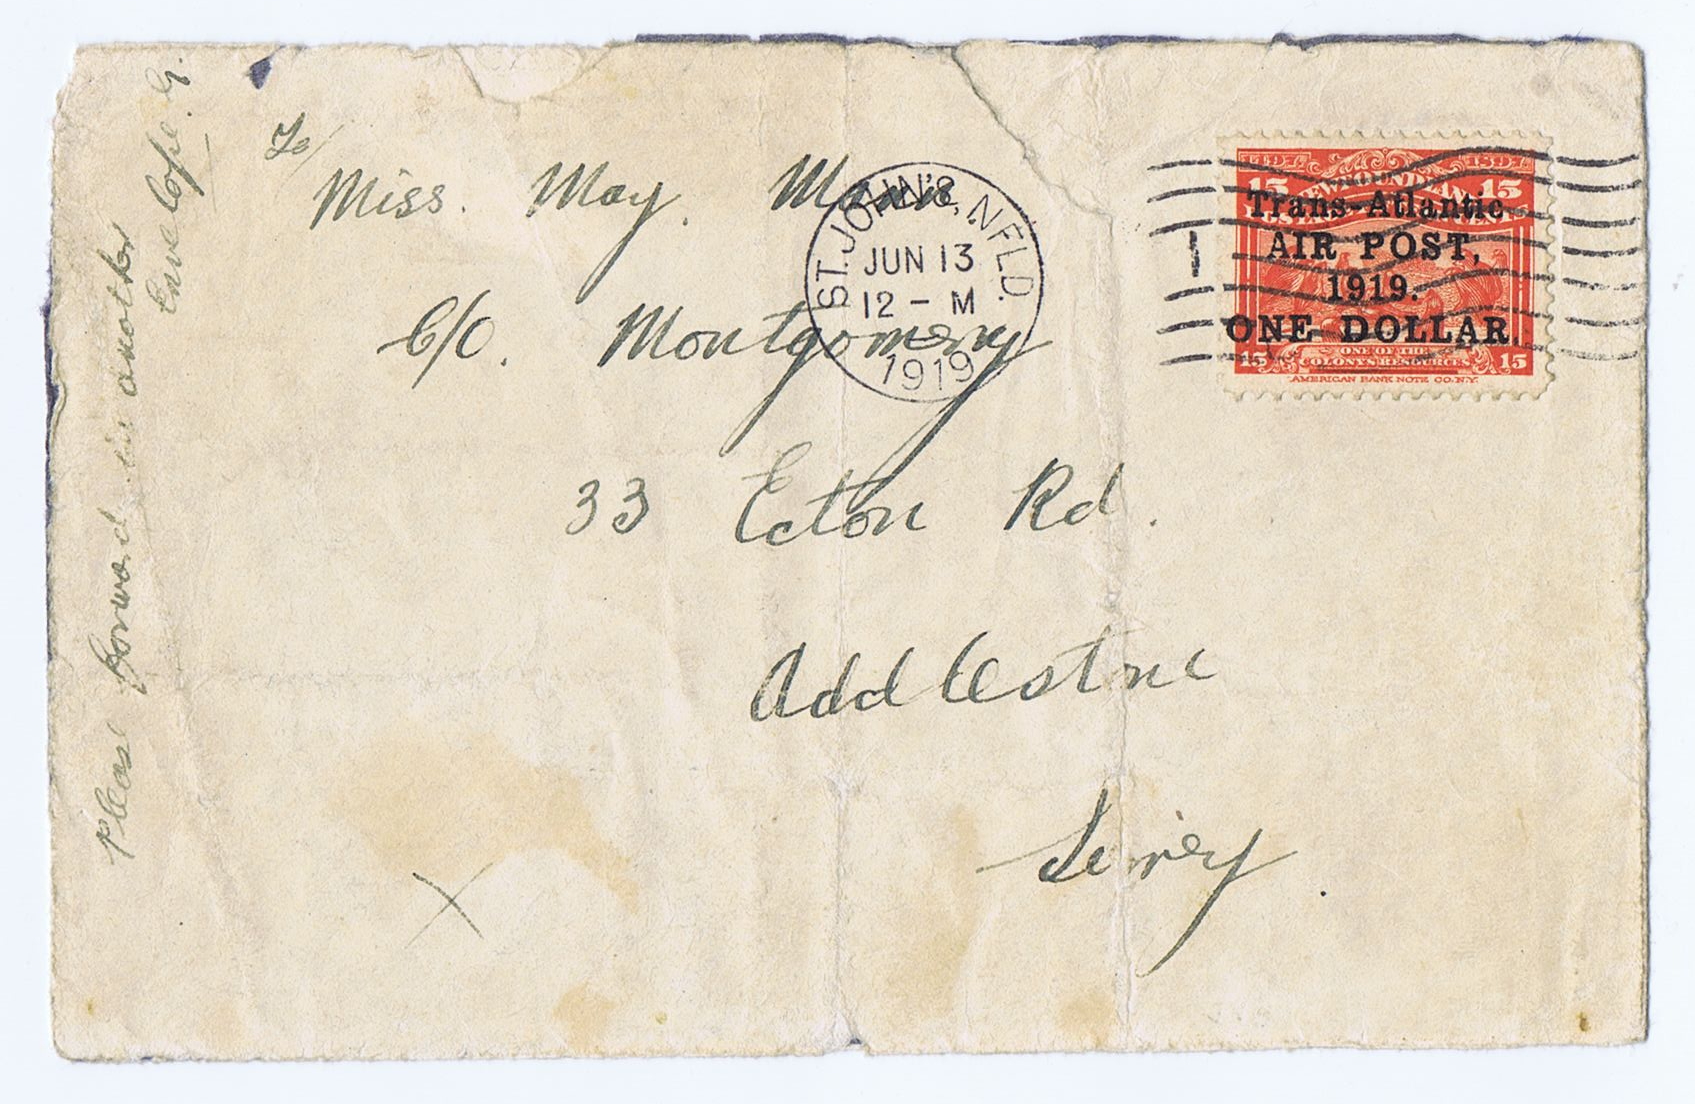 Please forward in another
Envelope. G.
To/
Miss. May.
ST. JOHN'S, NFLD.
JUN 13
12 - M
1919
C/O. Montgomery
33 Ecton Rd.
Addlestone
Surrey.
1
15 NEWFOUNDLAND 15
Trans-Atlantic
AIR POST,
1919.
ONE DOLLAR.
ONE OF THE
15 COLONY'S RESOURCES 15
AMERICAN BANK NOTE CO. N.Y.